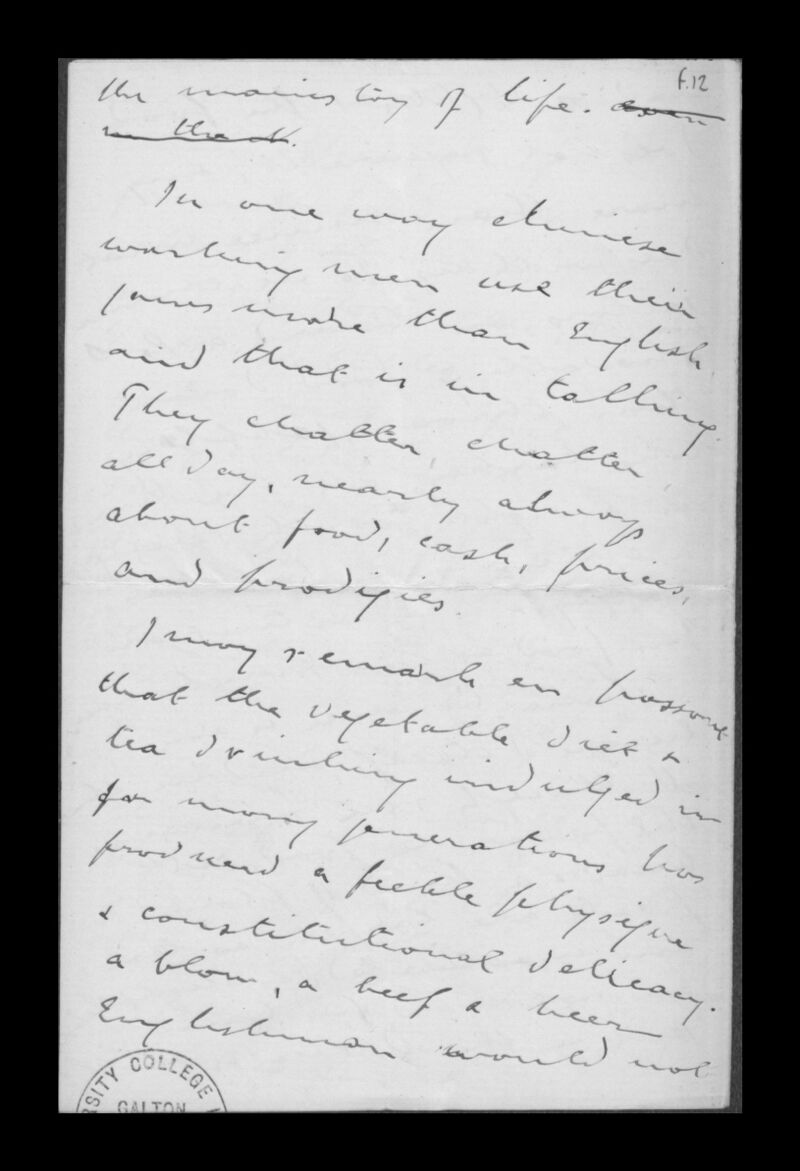 f.12
the mainstay of life. even
in the
In one way chinese
working men use their
jaws more than English
and that is in talking.
They chatter, chatter
all day, nearly always
about food, cash, prices,
and prodigies.
I may remark en passant
that the vegetable diet &
tea drinking indulged in
for many generations has
produced a feeble physique
& constitutional delicacy.
a blow, a beef & beer
Englishman would not
RSITY COLLEGE
GALTON